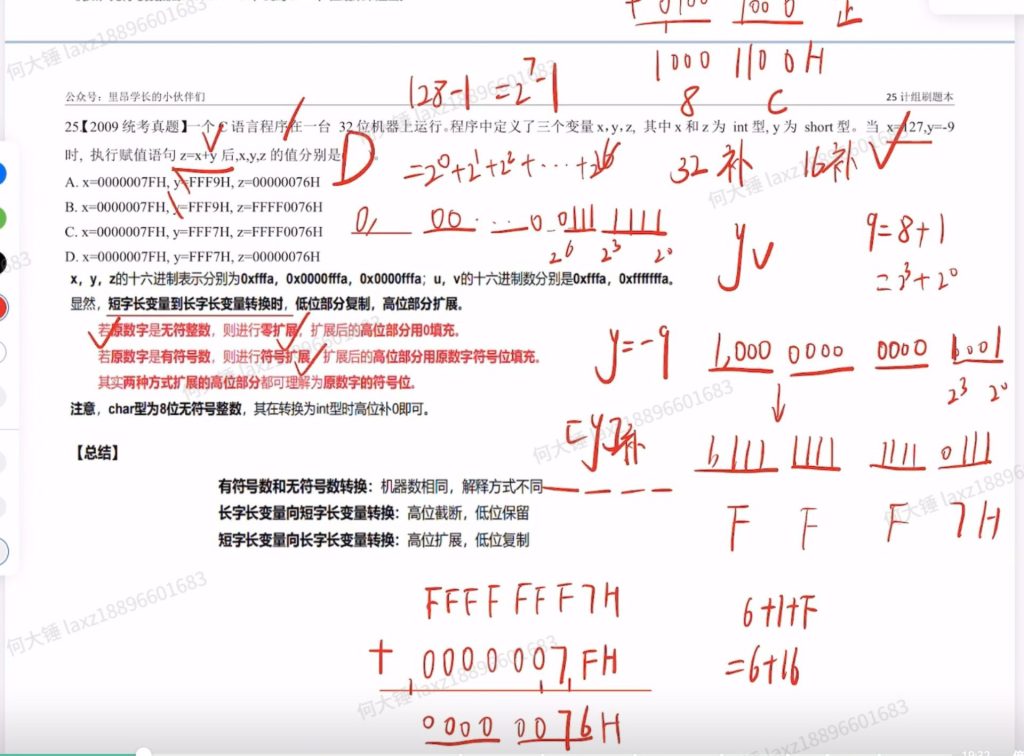 + 0100 1000 正
1000 1100H
8 C
128-1 =2^7-1
公众号：里昂学长的小伙伴们
25 计组刷题本
25【2009 统考真题】一个 C 语言程序在一台 32位机器上运行。程序中定义了三个变量 x, y, z, 其中 x 和 z 为 int 型, y 为 short 型。当 x=127,y=-9
时, 执行赋值语句 z=x+y 后,x,y,z 的值分别是 D
=2^0+2^1+2^2+ ... +2^6
32 补 16补
A. x=0000007FH, y=FFF9H, z=00000076H
B. x=0000007FH, y=FFF9H, z=FFFF0076H
C. x=0000007FH, y=FFF7H, z=FFFF0076H
D. x=0000007FH, y=FFF7H, z=00000076H
0, 00 ... 0 0111 1111
2^6 2^3 2^0
y
9=8+1
=2^3+2^0
x，y，z的十六进制表示分别为0xfffa，0x0000fffa，0x0000fffa；u，v的十六进制数分别是0xfffa，0xfffffffa。
显然，短字长变量到长字长变量转换时，低位部分复制，高位部分扩展。
若原数字是无符整数，则进行零扩展，扩展后的高位部分用0填充。
若原数字是有符号数，则进行符号扩展，扩展后的高位部分用原数字符号位填充。
其实两种方式扩展的高位部分都可理解为原数字的符号位。
注意，char型为8位无符号整数，其在转换为int型时高位补0即可。
y=-9 1,000 0000 0000 1001
2^3 2^0
[y]补 1,111 1111 1111 0111
F F F 7H
【总结】
有符号数和无符号数转换：机器数相同，解释方式不同
长字长变量向短字长变量转换：高位截断，低位保留
短字长变量向长字长变量转换：高位扩展，低位复制
FFFF FFF7H
+ 0000007FH
0000 0076H
6+1+F
=6+16
何大锤 laxz18896601683